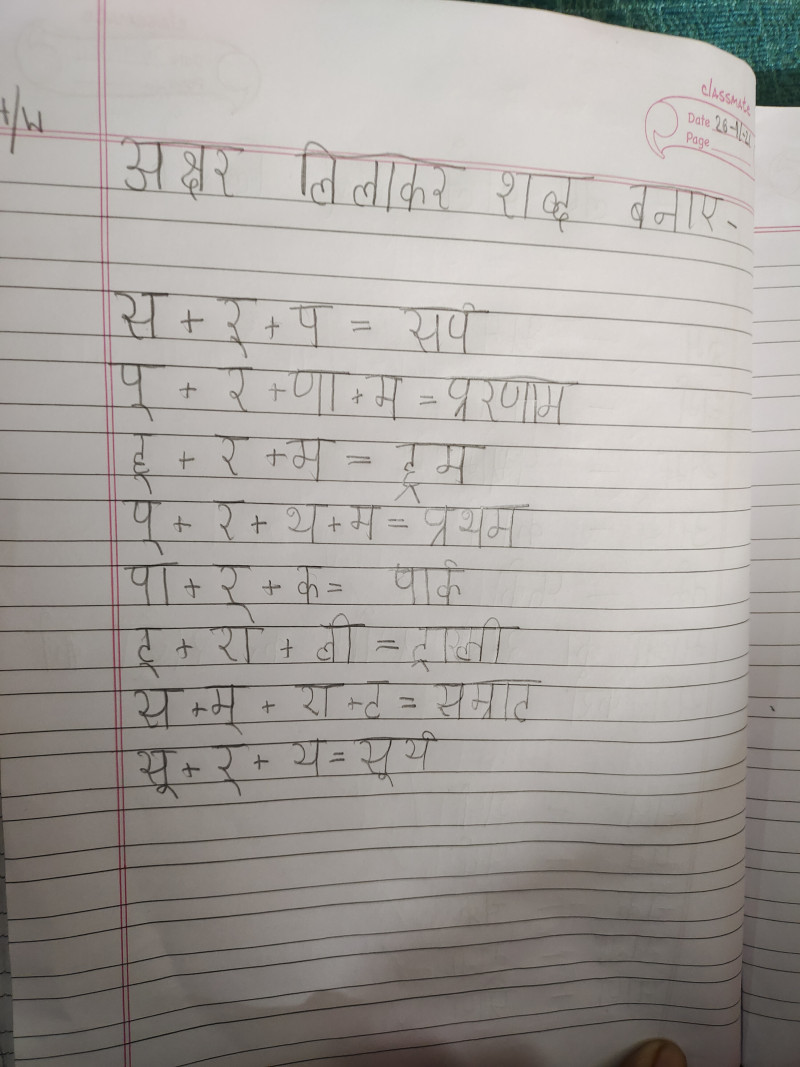 H/W
classmate
Date 26-11-21
Page
अक्षर लिलाकर शब्द बनाए-
स + र् + प = सर्प
प् + र + णा + म = प्ररणाम
ड् + र + म = ड्रम
प् + र + थ + म = प्रथम
पा + र् + क = पार्क
ट् + रा + ली = ट्राली
स + म् + रा + ट = सम्राट
सू + र् + य = सूर्य